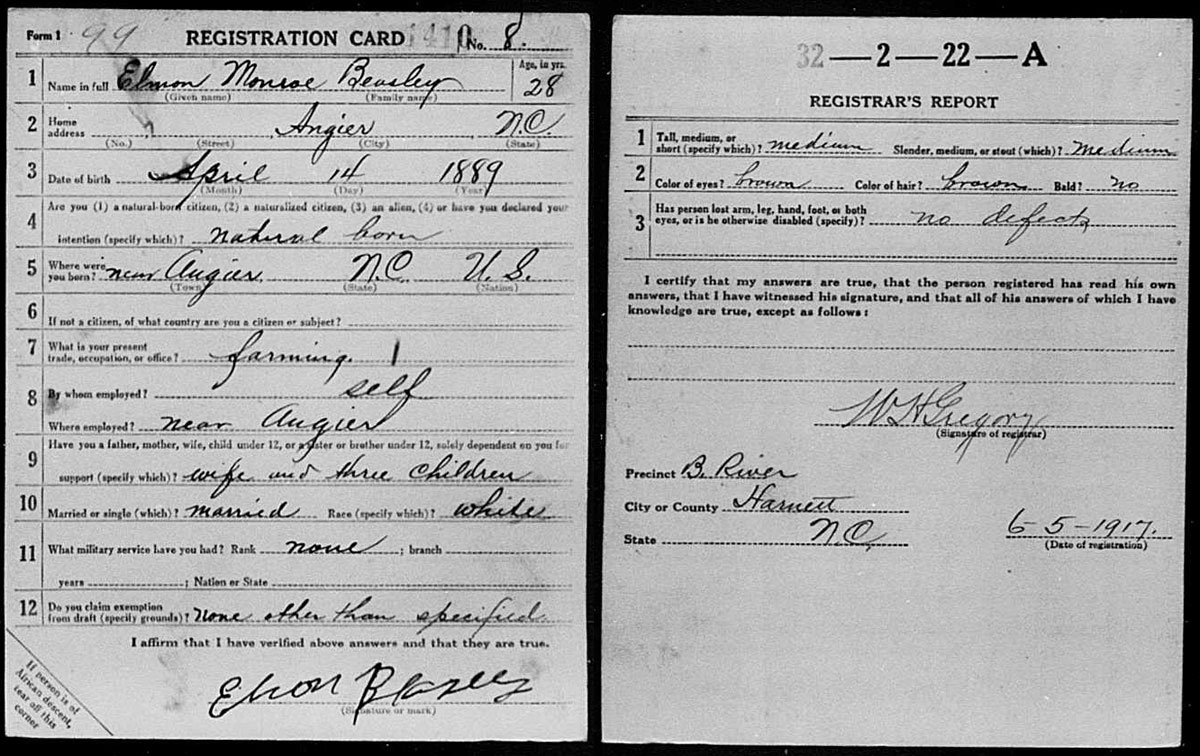 Form 1 99 REGISTRATION CARD 1410 No. 8.
1 Name in full Elmon Monroe Beasley Age, in yrs. 28
(Given name) (Family name)
2 Home address Angier N.C.
(No.) (Street) (City) (State)
3 Date of birth April 14 1889
(Month) (Day) (Year)
4 Are you (1) a natural-born citizen, (2) a naturalized citizen, (3) an alien, (4) or have you declared your
intention (specify which)? natural born
5 Where were you born? near Angier N.C. U.S.
(Town) (State) (Nation)
6 If not a citizen, of what country are you a citizen or subject?
7 What is your present trade, occupation, or office? farming.
8 By whom employed? self
Where employed? near Angier
9 Have you a father, mother, wife, child under 12, or a sister or brother under 12, solely dependent on you for
support (specify which)? wife and three children
10 Married or single (which)? married Race (specify which)? white
11 What military service have you had? Rank none ; branch
years ; Nation or State
12 Do you claim exemption from draft (specify grounds)? None other than specified.
I affirm that I have verified above answers and that they are true.
Beasley
(Signature or mark)
If person is of
African descent,
tear off this
corner
32—2—22—A
REGISTRAR'S REPORT
1 Tall, medium, or short (specify which)? medium Slender, medium, or stout (which)? medium
2 Color of eyes? brown Color of hair? brown Bald? no
3 Has person lost arm, leg, hand, foot, or both eyes, or is he otherwise disabled (specify)? no defects
I certify that my answers are true, that the person registered has read his own
answers, that I have witnessed his signature, and that all of his answers of which I have
knowledge are true, except as follows:
W H Gregory
(Signature of registrar)
Precinct B. River
City or County Harnett
State N.C. 6-5-1917.
(Date of registration)